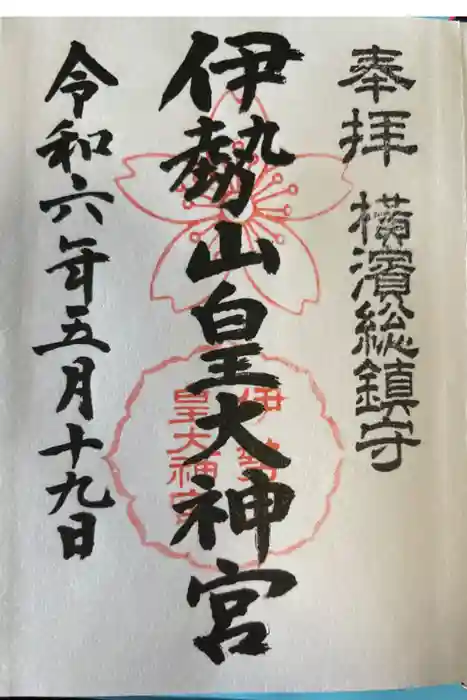 奉拝 横濱総鎮守
伊勢山皇大神宮
伊勢山
皇大神宮
令和六年五月十九日